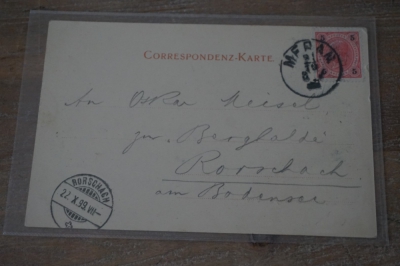 CORRESPONDENZ-KARTE
MERAN
5 5
An Oskar Meisel
zur Berghalde
Rorschach
am Bodensee
RORSCHACH
27.X.99.VII-